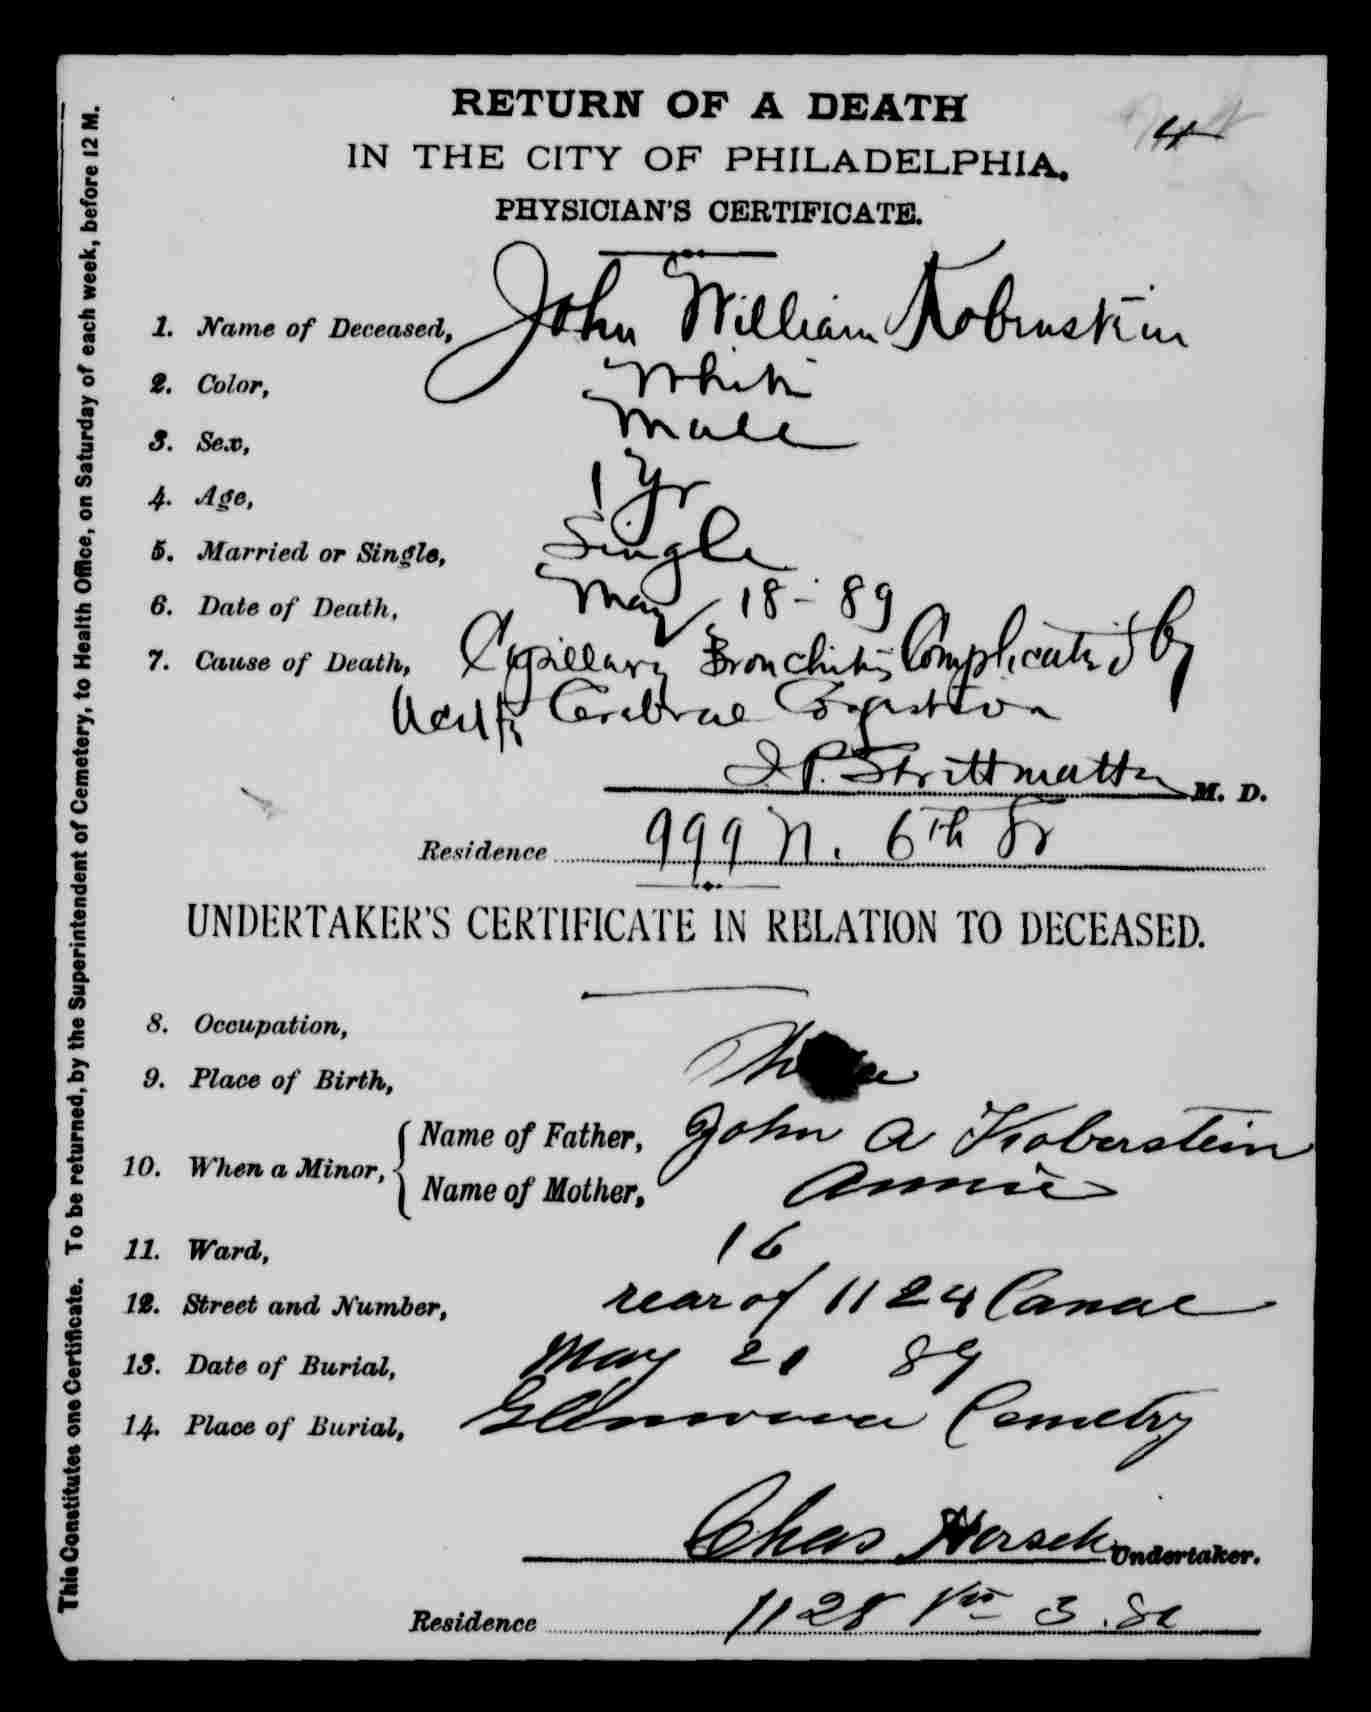 4
RETURN OF A DEATH
IN THE CITY OF PHILADELPHIA.
PHYSICIAN'S CERTIFICATE.
1. Name of Deceased, John William Kobenstein
2. Color, White
3. Sex, Male
4. Age, 1 Yr
5. Married or Single, Single
6. Date of Death, May 18-89
7. Cause of Death, Capillary Bronchitis Complicated by
Acute Cerebral Congestion
J. P. Strittmatter M. D.
Residence 999 N. 6th St
UNDERTAKER'S CERTIFICATE IN RELATION TO DECEASED.
8. Occupation,
9. Place of Birth,
10. When a Minor, { Name of Father, John A Koberstein
Name of Mother, Annie
11. Ward, 16
12. Street and Number, rear of 1124 Canal
13. Date of Burial, May 21 89
14. Place of Burial, Glenwood Cemetry
Chas Horsch Undertaker.
Residence 1128 3. St
This Constitutes one Certificate. To be returned, by the Superintendent of Cemetery, to Health Office, on Saturday of each week, before 12 M.